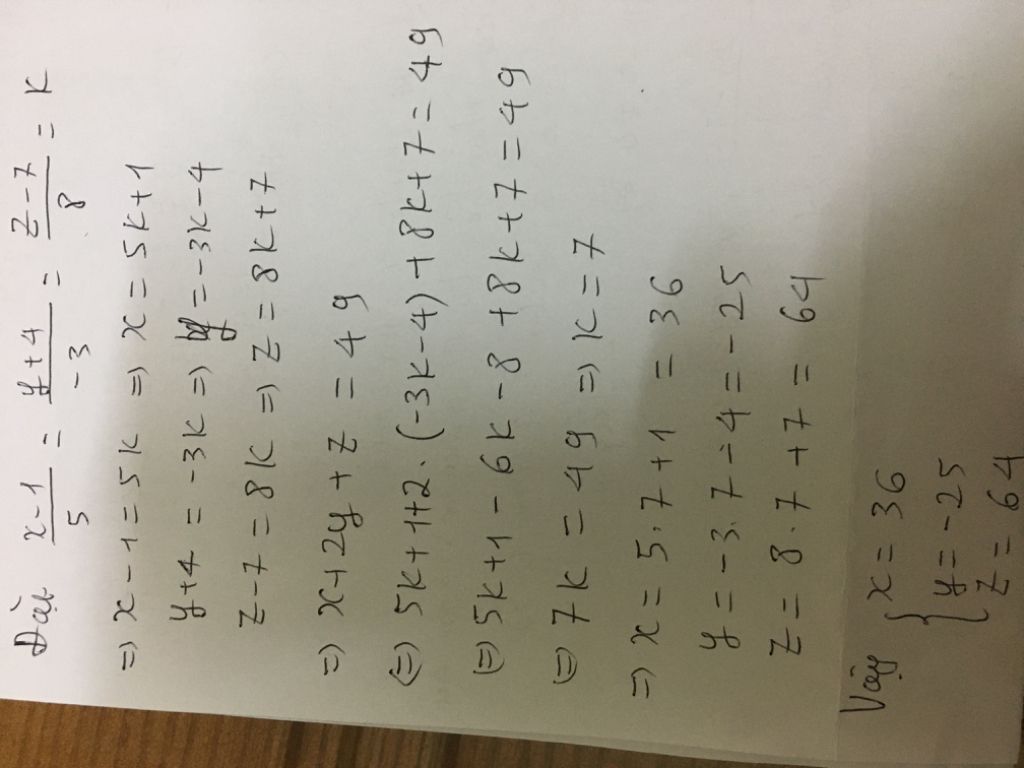 Đặt x-1/5 = y+4/-3 = z-7/8 = k
=> x-1=5k => x=5k+1
y+4=-3k => y=-3k-4
z-7=8k => z=8k+7
=> x+2y+z=49
(=) 5k+1+2.(-3k-4)+8k+7=49
(=) 5k+1-6k-8+8k+7=49
(=) 7k=49 => k=7
=> x=5.7+1=36
y=-3.7-4=-25
z=8.7+7=64
Vậy { x=36
y=-25
z=64